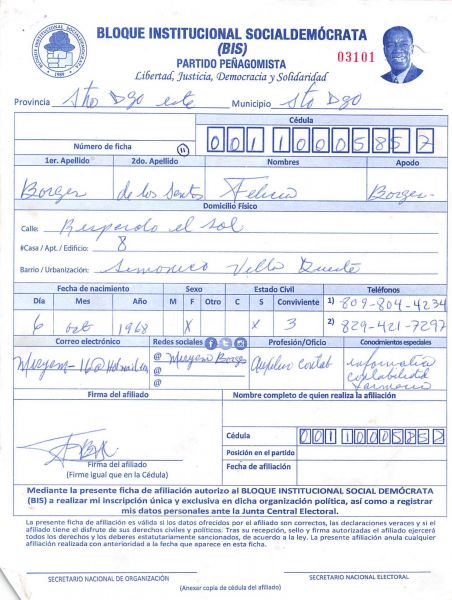 BLOQUE INSTITUCIONAL SOCIALDEMÓCRATA
(BIS)
PARTIDO PEÑAGOMISTA
Libertad, Justicia, Democracia y Solidaridad
03101
BLOQUE INSTITUCIONAL SOCIALDEMOCRATA
Provincia Sto Dgo este Municipio Sto Dgo
Cédula
Número de ficha 11 001 1000585 2
1er. Apellido 2do. Apellido Nombres Apodo
Borges de los Santos Felicia Borges
Domicilio Físico
Calle: Respardo el sol
#Casa / Apt. / Edificio: 8
Barrio / Urbanización: Villa Duarte
Fecha de nacimiento Sexo Estado Civil Teléfonos
Día Mes Año M F Otro C S Conviviente 1) 809-804-4234
6 oct 1968 X X 3 2) 829-421-7297
Correo electrónico Redes sociales Profesión/Oficio Conocimientos especiales
@ Miryem Borges
@
@
informatica
contabilidad
farmacia
Firma del afiliado Nombre completo de quien realiza la afiliación
Cédula 001 1000585 2
Posición en el partido
Fecha de afiliación
Firma del afiliado
(Firme igual que en la Cédula)
Mediante la presente ficha de afiliación autorizo al BLOQUE INSTITUCIONAL SOCIAL DEMÓCRATA
(BIS) a realizar mi inscripción única y exclusiva en dicha organización política, así como a registrar
mis datos personales ante la Junta Central Electoral.
La presente ficha de afiliación es válida si los datos ofrecidos por el afiliado son correctos, las declaraciones veraces y si el
afiliado tiene el disfrute de sus derechos civiles y políticos. Tras su recepción, sello y firma autorizadas el afiliado ejercerá
todos los derechos y los deberes estatutariamente sancionados, de acuerdo a la ley. La presente afiliación anula cualquier
afiliación realizada con anterioridad a la fecha que aparece en esta ficha.
SECRETARIO NACIONAL DE ORGANIZACIÓN SECRETARIO NACIONAL ELECTORAL
(Anexar copia de cédula del afiliado)